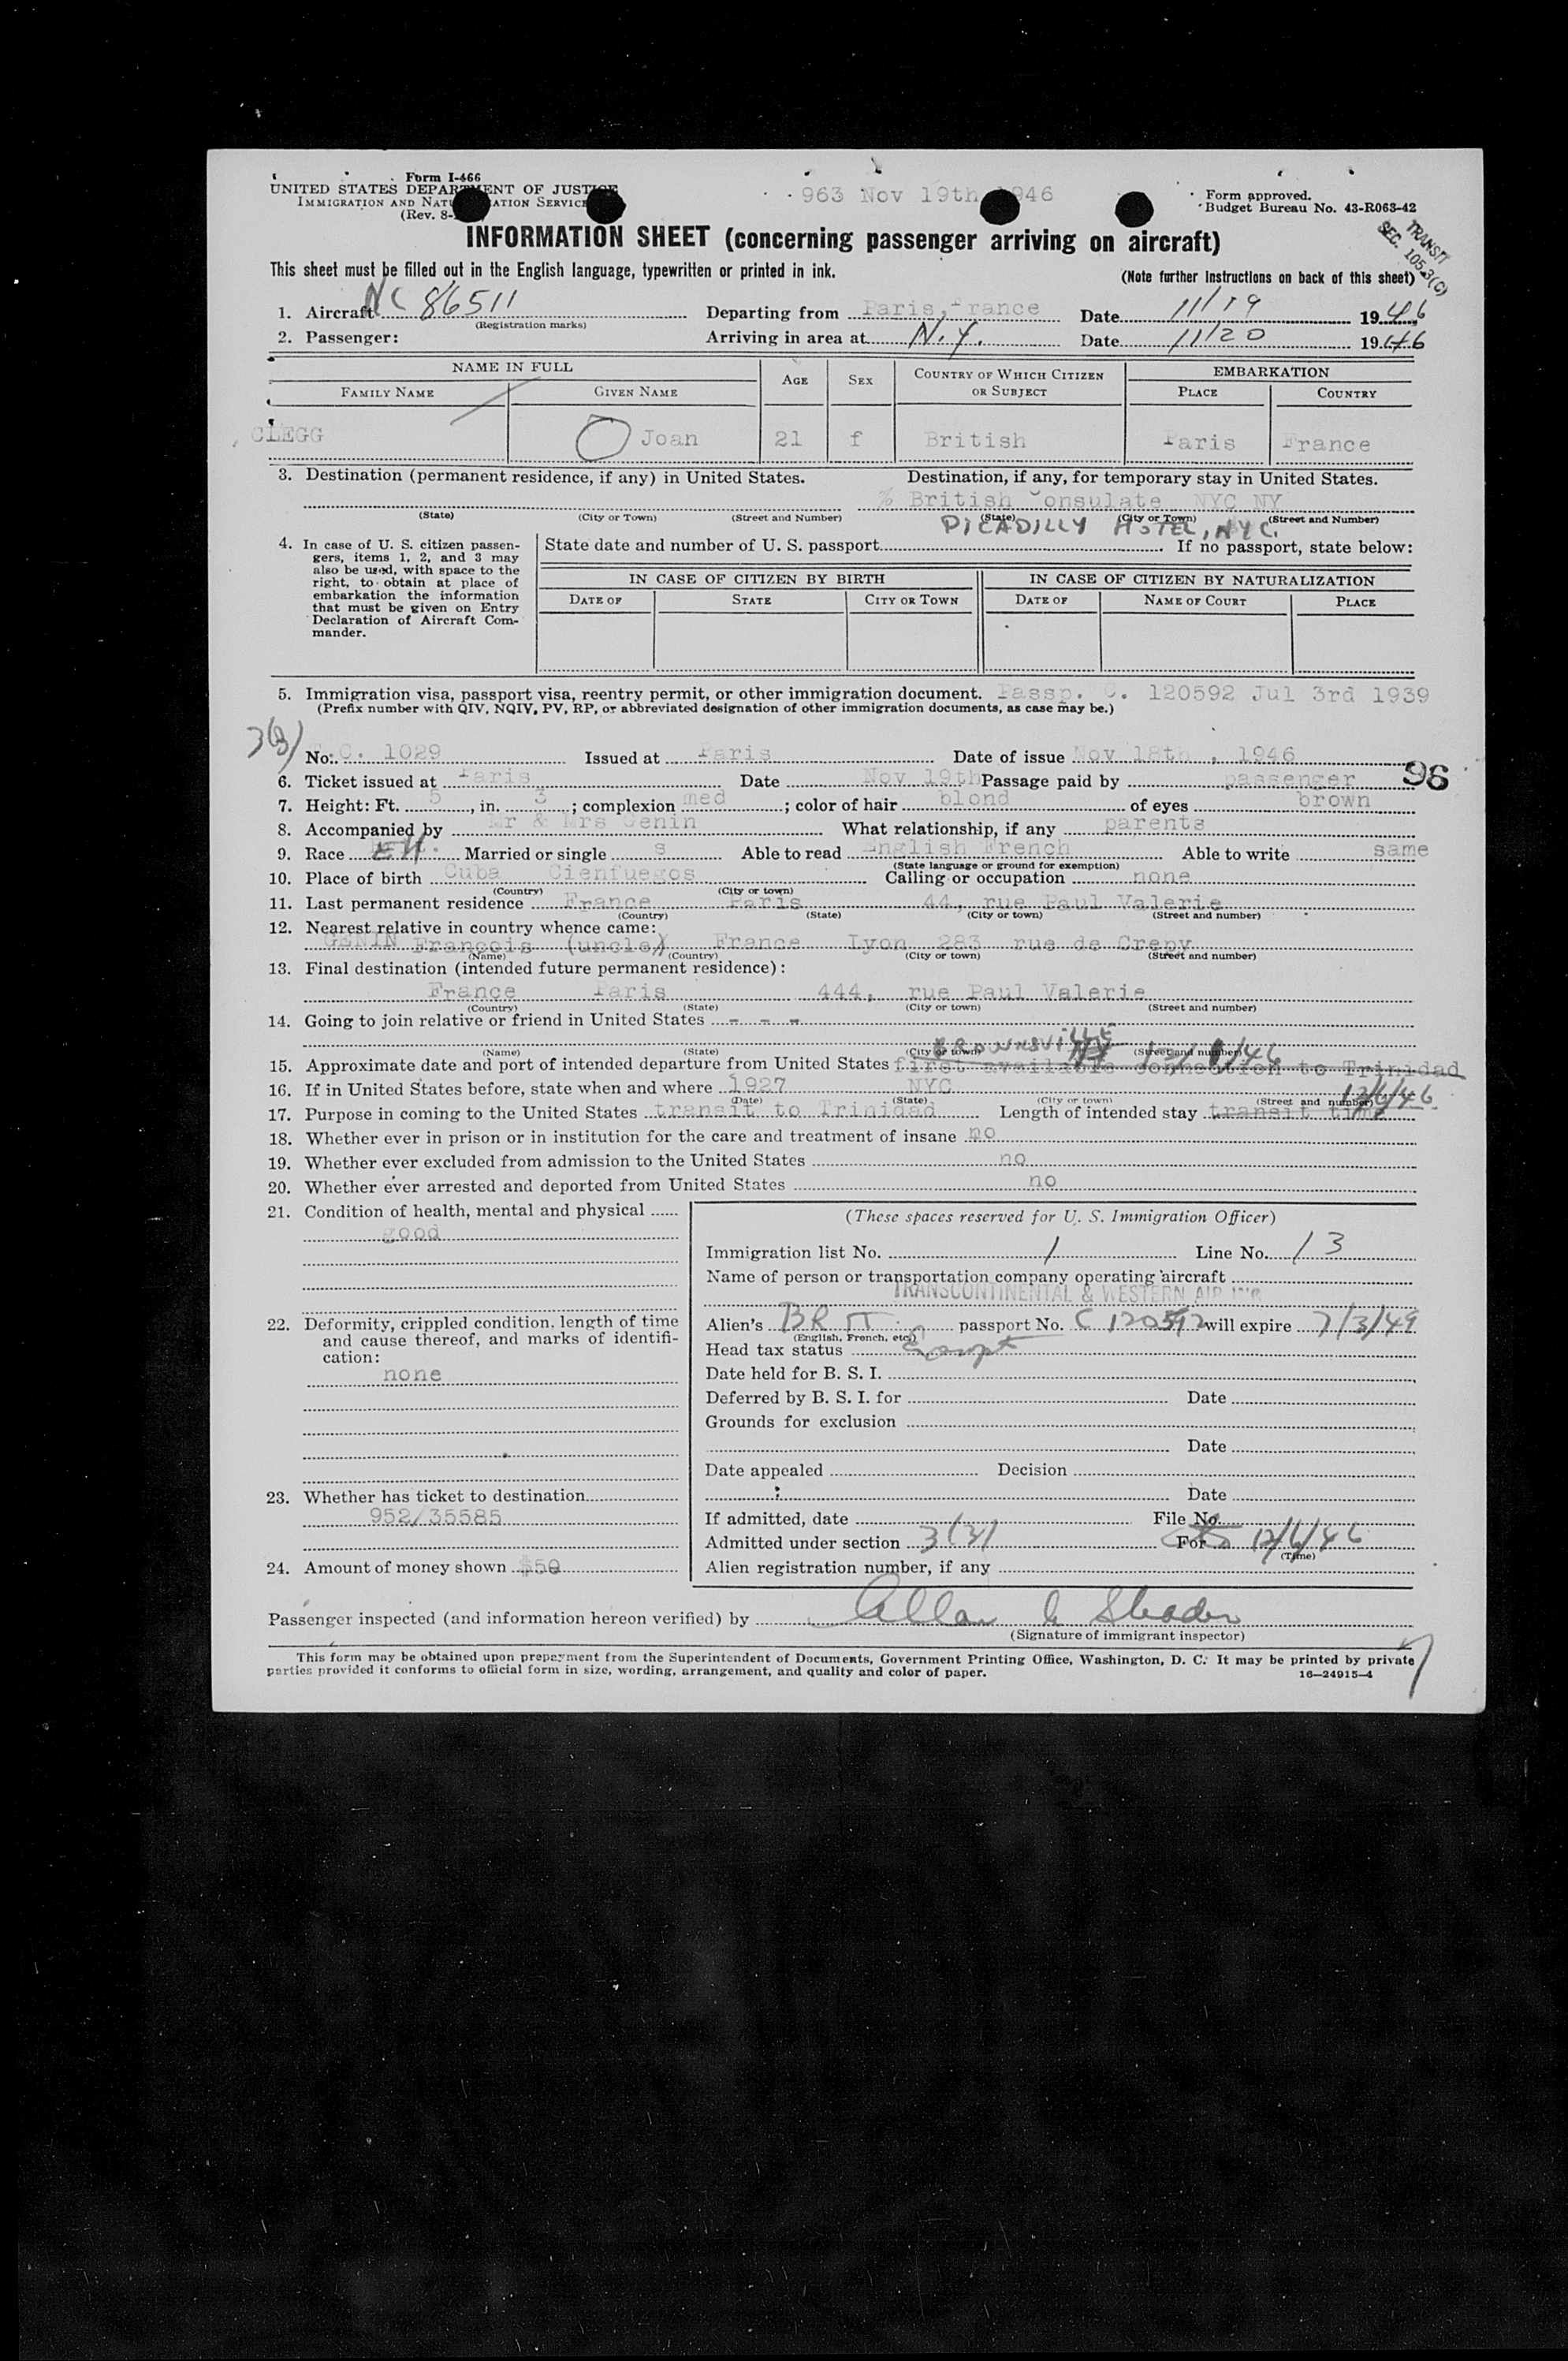 Form I-466
UNITED STATES DEPARTMENT OF JUSTICE
IMMIGRATION AND NATURALIZATION SERVICE
(Rev. 8-
963 Nov 19th 1946
Form approved.
Budget Bureau No. 43-R063-42
TRANSIT
SEC. 105.3(C)
INFORMATION SHEET (concerning passenger arriving on aircraft)
This sheet must be filled out in the English language, typewritten or printed in ink.
(Note further instructions on back of this sheet)
1. Aircraft NC 86511 Departing from Paris, France Date 11/19 1946
(Registration marks)
2. Passenger: Arriving in area at N.Y. Date 11/20 1946
NAME IN FULL AGE SEX COUNTRY OF WHICH CITIZEN OR SUBJECT EMBARKATION
FAMILY NAME GIVEN NAME PLACE COUNTRY
CLEGG Joan 21 f British Paris France
3. Destination (permanent residence, if any) in United States. Destination, if any, for temporary stay in United States.
% British Consulate NYC NY
(State) (City or Town) (Street and Number) (State) (City or Town) (Street and Number)
PICADILLY HOTEL, NYC.
4. In case of U. S. citizen passengers, items 1, 2, and 3 may also be used, with space to the right, to obtain at place of embarkation the information that must be given on Entry Declaration of Aircraft Commander.
State date and number of U. S. passport If no passport, state below:
IN CASE OF CITIZEN BY BIRTH IN CASE OF CITIZEN BY NATURALIZATION
DATE OF STATE CITY OR TOWN DATE OF NAME OF COURT PLACE
5. Immigration visa, passport visa, reentry permit, or other immigration document. Passp. C. 120592 Jul 3rd 1939
(Prefix number with QIV, NQIV, PV, RP, or abbreviated designation of other immigration documents, as case may be.)
3(3)
No. C. 1029 Issued at Paris Date of issue Nov 18th, 1946
96
6. Ticket issued at Paris Date Nov 19th Passage paid by passenger
7. Height: Ft. 5, in. 3; complexion med; color of hair blond of eyes brown
8. Accompanied by Mr & Mrs Genin What relationship, if any parents
9. Race EN. Married or single s Able to read English French Able to write same
(State language or ground for exemption)
10. Place of birth Cuba Cienfuegos Calling or occupation none
(Country) (City or town)
11. Last permanent residence France Paris 44, rue Paul Valerie
(Country) (State) (City or town) (Street and number)
12. Nearest relative in country whence came:
GENIN François (uncle) France Lyon 283 rue de Crepy
(Name) (Country) (City or town) (Street and number)
13. Final destination (intended future permanent residence):
France Paris 444, rue Paul Valerie
(Country) (State) (City or town) (Street and number)
14. Going to join relative or friend in United States - - -
(Name) (State) (City or town) (Street and number)
BROWNSVILLE
15. Approximate date and port of intended departure from United States first available connection to Trinidad
16. If in United States before, state when and where 1927 NYC
(Date) (State) (City or town) (Street and number)
12/6/46
17. Purpose in coming to the United States transit to Trinidad Length of intended stay transit time
18. Whether ever in prison or in institution for the care and treatment of insane no
19. Whether ever excluded from admission to the United States no
20. Whether ever arrested and deported from United States no
21. Condition of health, mental and physical
good
22. Deformity, crippled condition, length of time and cause thereof, and marks of identification:
none
23. Whether has ticket to destination
952/35585
24. Amount of money shown $50
(These spaces reserved for U. S. Immigration Officer)
Immigration list No. 1 Line No. 13
Name of person or transportation company operating aircraft
TRANSCONTINENTAL & WESTERN AIR INC
Alien's BRIT. passport No. C 120592 will expire 7/3/49
(English, French, etc.)
Head tax status Exempt
Date held for B. S. I.
Deferred by B. S. I. for Date
Grounds for exclusion
Date
Date appealed Decision
Date
If admitted, date File No.
Admitted under section 3(3) For 12/6/46
(Time)
Alien registration number, if any
Passenger inspected (and information hereon verified) by
(Signature of immigrant inspector)
This form may be obtained upon prepayment from the Superintendent of Documents, Government Printing Office, Washington, D. C. It may be printed by private
parties provided it conforms to official form in size, wording, arrangement, and quality and color of paper.
16—24915-4